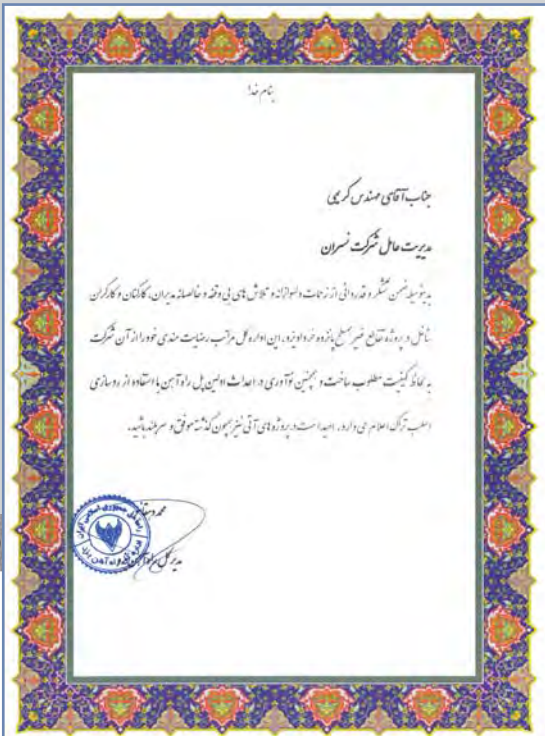 بنام خدا
جناب آقای مهندس کریمی
مدیریت عامل شرکت نسران
بدینوسیله ضمن تشکر و قدردانی از زحمات دلسوزانه و تلاش های بی وقفه و خالصانه مدیران، کارکنان و کارگران
شاغل در پروژه تقاطع غیر مسطح پانزده خرداد یزد، این اداره کل مراتب رضایت مندی خود را از آن شرکت
به لحاظ کیفیت مطلوب ساخت و همچنین نوآوری در احداث اولین پل راه آهن با استفاده از روسازی
اسلب ترک اعلام می دارد. امید است در پروژه های آتی نیز همچون گذشته موفق و سربلند باشید.
مدیر کل راه آهن